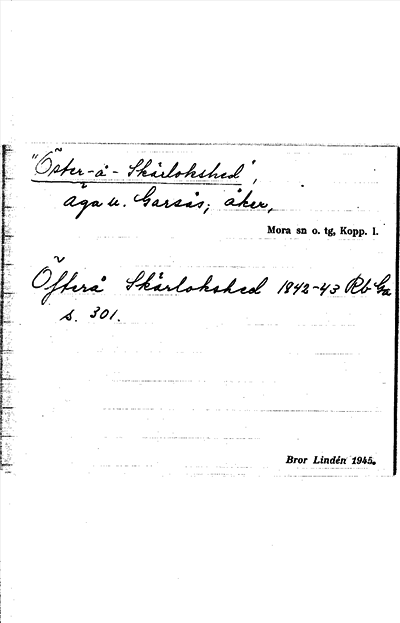 "Öster-å-Skårlokshed",
äga u. Garsås; åker,
Mora sn o. tg, Kopp. l.
Öfterå Skårlokshed 1842-43 Rb Ga
s. 301.
Bror Lindén 1945.